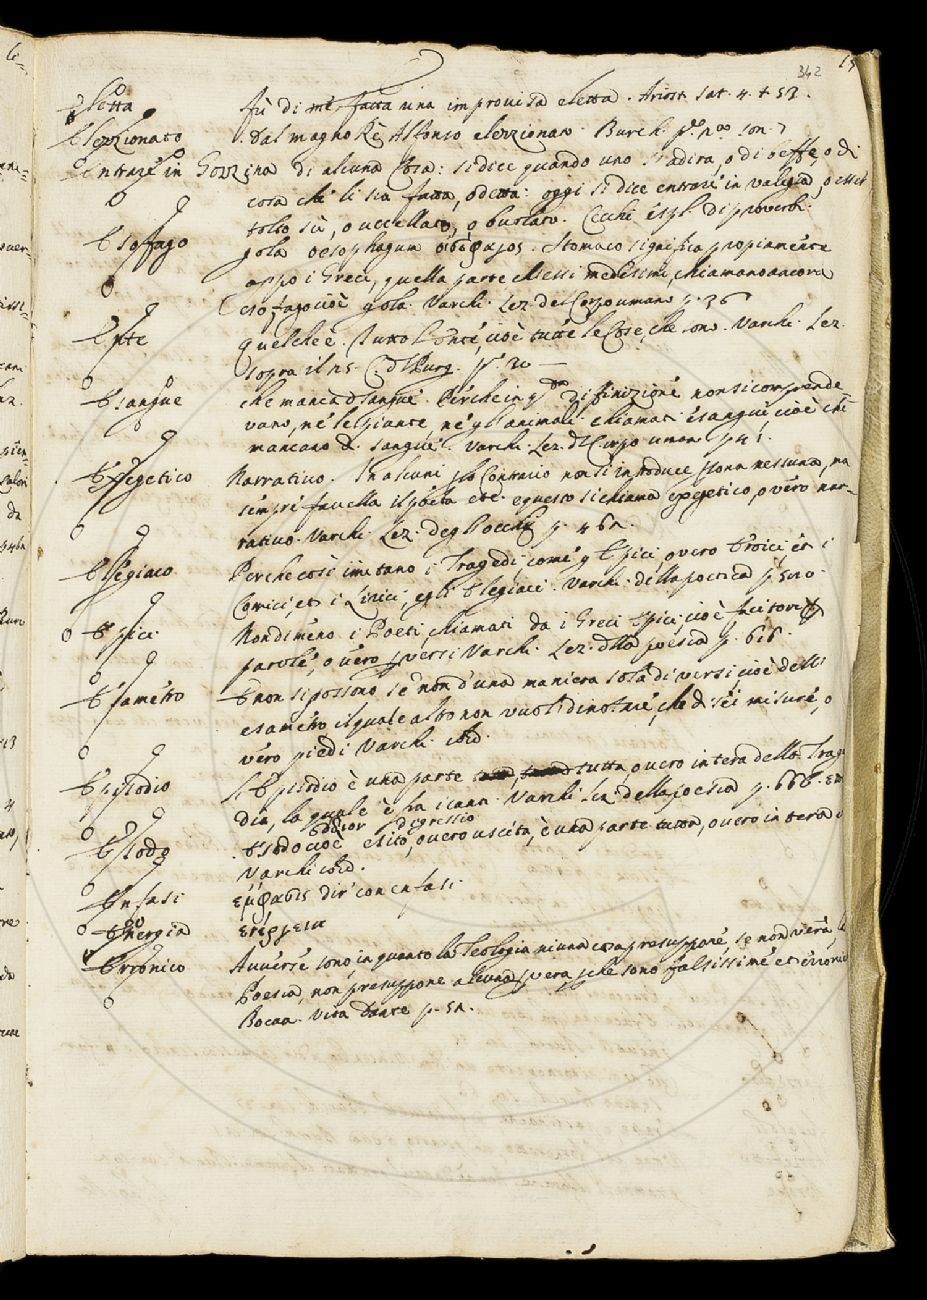 342
Eletta fù di me fatta una improvisa eletta. Ariost. sat. 4. t. 53.
Elezzionato Dal magno Rè Alfonso elezzionato. Burch. son. 7
Entrare in Gozzina di alcuna Cosa: si dice quando uno si adira, o di beffe, o di
cosa che li sia fatta, o detta: oggi si dice entrare in valigia, o esser
tolto sù, o uccellato, o burlato. Cecchi espl. di proverbi.
Esofago gola oesophagum οἰσόφαγος. Stomaco significa propiamente
appo i Greci, quella parte che essi medesimi chiamano ancora
esofago cioè gola. Varchi. Lez. del Corpo umano p. 36
Ente quel che è. Tutto l'Ente, cioè tutte le Cose, che sono. Varchi. Lez.
sopra il 25. C. del Purg. p. 20
Esangue che manca di sangue. Perche in q.ta diffinizione non si comprende
vano, ne le piante, ne gl'animali chiamati esangue, cioè che
mancano di sangue. Varchi. Lez. del Corpo uman. p. 41.
Esegetico Narrativo. In alcuni per lo Contrario non si introduce persona nessuna, ma
sempre favella il poeta etc. e questo si chiama esegetico, o vero nar-
rativo. Varchi. Lez. degl'occhi p. 462.
Elegiaco Perche così imitano i Tragedi, come gl'Epici, overo Eroici et i
Comici, et i Lirici, e gli Elegiaci. Varchi. della poetica p. 520.
Epici Nondimeno i Poeti, chiamati da i Greci Epici, cioè facitori di
parole, o vero versi Varchi. Lez. della poesia p. 616.
Esametro E non si possono se non d'una maniera sola di versi, cioè dell'
esametro il quale altro non vuol dinotare, che di sei misure, o
vero piedi Varchi. ibid.
Episodio L'Episodio è una parte tutta, o vero intera della Trage
dia, la quale è fra i cann. Varchi Lez. della poesia p. 666.
digressio
Esodo Esodo cioè esito, overo uscita, è una parte tutta, overo intera
Varchi ibid.
Enfasi εμφασις dir' con enfasi.
Energia ενέργεια
Erronico Avverse sono, in quanto la Teologia niuna cosa presuppone, se non vera, la
Poesia, non presuppone alcuna per vera, che sono falsissime et erronice
Bocca. vita Dante p. 52.